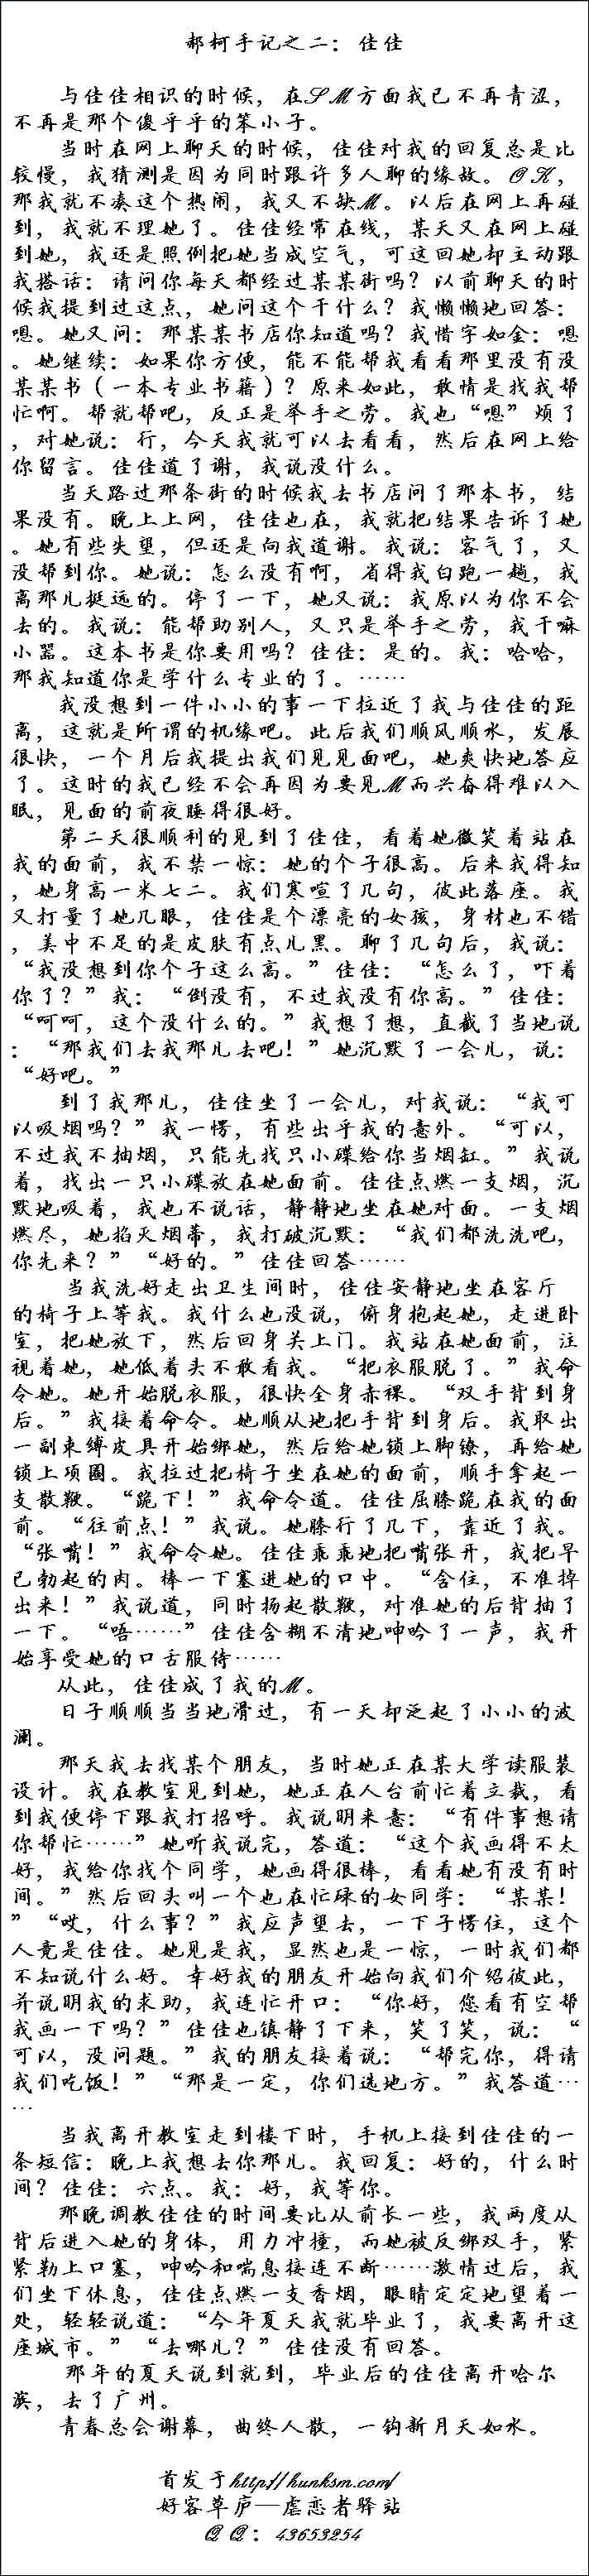 郝柯手记之二：佳佳
与佳佳相识的时候，在SM方面我已不再青涩，
不再是那个傻乎乎的笨小子。
当时在网上聊天的时候，佳佳对我的回复总是比
较慢，我猜测是因为同时跟许多人聊的缘故。OK，
那我就不凑这个热闹，我又不缺M。以后在网上再碰
到，我就不理她了。佳佳经常在线，某天又在网上碰
到她，我还是照例把她当成空气，可这回她却主动跟
我搭话：请问你每天都经过某某街吗？以前聊天的时
候我提到过这点，她问这个干什么？我懒懒地回答：
嗯。她又问：那某某书店你知道吗？我惜字如金：嗯
。她继续：如果你方便，能不能帮我看看那里没有没
某某书（一本专业书籍）？原来如此，敢情是找我帮
忙啊。帮就帮吧，反正是举手之劳。我也“嗯”烦了
，对她说：行，今天我就可以去看看，然后在网上给
你留言。佳佳道了谢，我说没什么。
当天路过那条街的时候我去书店问了那本书，结
果没有。晚上上网，佳佳也在，我就把结果告诉了她
。她有些失望，但还是向我道谢。我说：客气了，又
没帮到你。她说：怎么没有啊，省得我白跑一趟，我
离那儿挺远的。停了一下，她又说：我原以为你不会
去的。我说：能帮助别人，又只是举手之劳，我干嘛
小器。这本书是你要用吗？佳佳：是的。我：哈哈，
那我知道你是学什么专业的了。……
我没想到一件小小的事一下拉近了我与佳佳的距
离，这就是所谓的机缘吧。此后我们顺风顺水，发展
很快，一个月后我提出我们见见面吧，她爽快地答应
了。这时的我已经不会再因为要见M而兴奋得难以入
眠，见面的前夜睡得很好。
第二天很顺利的见到了佳佳，看着她微笑着站在
我的面前，我不禁一惊：她的个子很高。后来我得知
，她身高一米七二。我们寒喧了几句，彼此落座。我
又打量了她几眼，佳佳是个漂亮的女孩，身材也不错
，美中不足的是皮肤有点儿黑。聊了几句后，我说：
“我没想到你个子这么高。”佳佳：“怎么了，吓着
你了？”我：“倒没有，不过我没有你高。”佳佳：
“呵呵，这个没什么的。”我想了想，直截了当地说
：“那我们去我那儿去吧！”她沉默了一会儿，说：
“好吧。”
到了我那儿，佳佳坐了一会儿，对我说：“我可
以吸烟吗？”我一愣，有些出乎我的意外。“可以，
不过我不抽烟，只能先找只小碟给你当烟缸。”我说
着，找出一只小碟放在她面前。佳佳点燃一支烟，沉
默地吸着，我也不说话，静静地坐在她对面。一支烟
燃尽，她掐灭烟蒂，我打破沉默：“我们都洗洗吧，
你先来？”“好的。”佳佳回答……
当我洗好走出卫生间时，佳佳安静地坐在客厅
的椅子上等我。我什么也没说，俯身抱起她，走进卧
室，把她放下，然后回身关上门。我站在她面前，注
视着她，她低着头不敢看我。“把衣服脱了。”我命
令她。她开始脱衣服，很快全身赤裸。“双手背到身
后。”我接着命令。她顺从地把手背到身后。我取出
一副束缚皮具开始绑她，然后给她锁上脚镣，再给她
锁上项圈。我拉过把椅子坐在她的面前，顺手拿起一
支散鞭。“跪下！”我命令道。佳佳屈膝跪在我的面
前。“往前点！”我说。她膝行了几下，靠近了我。
“张嘴！”我命令她。佳佳乖乖地把嘴张开，我把早
已勃起的肉。棒一下塞进她的口中。“含住，不准掉
出来！”我说道，同时扬起散鞭，对准她的后背抽了
一下。“唔……”佳佳含糊不清地呻吟了一声，我开
始享受她的口舌服侍……
从此，佳佳成了我的M。
日子顺顺当当地滑过，有一天却泛起了小小的波
澜。
那天我去找某个朋友，当时她正在某大学读服装
设计。我在教室见到她，她正在人台前忙着立裁，看
到我便停下跟我打招呼。我说明来意：“有件事想请
你帮忙……”她听我说完，答道：“这个我画得不太
好，我给你找个同学，她画得很棒，看看她有没有时
间。”然后回头叫一个也在忙碌的女同学：“某某！
”“哎，什么事？”我应声望去，一下子愣住，这个
人竟是佳佳。她见是我，显然也是一惊，一时我们都
不知说什么好。幸好我的朋友开始向我们介绍彼此，
并说明我的求助，我连忙开口：“你好，您看有空帮
我画一下吗？”佳佳也镇静了下来，笑了笑，说：“
可以，没问题。”我的朋友接着说：“帮完你，得请
我们吃饭！”“那是一定，你们选地方。”我答道…
…
当我离开教室走到楼下时，手机上接到佳佳的一
条短信：晚上我想去你那儿。我回复：好的，什么时
间？佳佳：六点。我：好，我等你。
那晚调教佳佳的时间要比从前长一些，我两度从
背后进入她的身体，用力冲撞，而她被反绑双手，紧
紧勒上口塞，呻吟和喘息接连不断……激情过后，我
们坐下休息，佳佳点燃一支香烟，眼睛定定地望着一
处，轻轻说道：“今年夏天我就毕业了，我要离开这
座城市。”“去哪儿？”佳佳没有回答。
那年的夏天说到就到，毕业后的佳佳离开哈尔
滨，去了广州。
青春总会谢幕，曲终人散，一钩新月天如水。
首发于http://hunksm.com/
好客草庐—虐恋者驿站
QQ：43653254